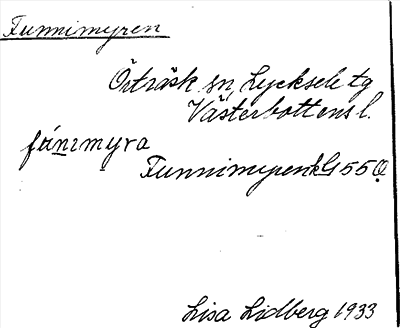 Funnimyren
Örträsk sn, Lycksele tg
Västerbottens l.
fúnımyra
Funnimyren kG 55 Ö
Lisa Lidberg 1933